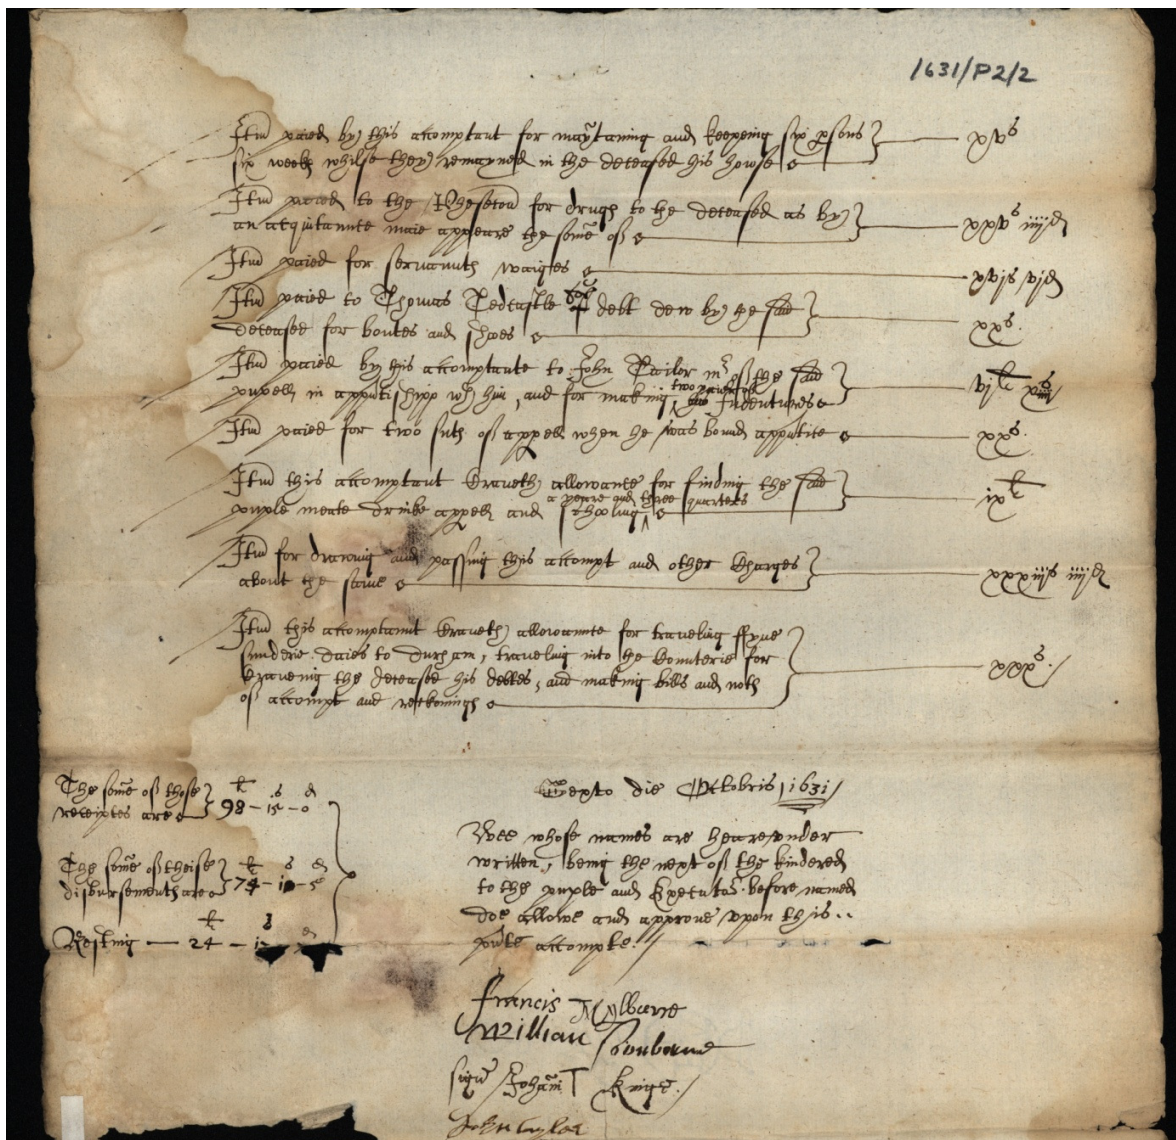 1631/P2/2
Itm paied by this accomptant for maytaining and keepeing six psons xvs
six weeks whilse they remayned in the deceased his howse
Itm paied to the for drugs to the deceased as by xxvs iiijd
an acquitannce maie appeare the some of
Itm paied for servannts waiges xvjs vjd
Itm paied to Thomas Redcastle for debt dew by the said xxs.
deceased for bootes and shoes
Itm paied by this accomptante to John Tailor mr of the said vjli
pupell in apprntishipp wth him, and for making two paire of Indentures
Itm paied for two suts of appell when he was bound apprntice xxs.
Itm this accomptant craveth allowance for finding the said ixli
puple meate drinke appell and schooling a yeare and three quarters
Itm for drawing and passing this accompt and other charges xxxiijs iiijd
about the same
Itm this accomptannt craveth allowannce for traveling ffyve xxxs./
sunderie daies to Durham, traveling into the countrie for
craveing the deceased his debtes, and making bills and nots
of accompt and reckonings
The some of those li s d
receiptes are 98 - 15 - 0
The some of theise li s d
disbursements are 74 - - 5
Resting - 24 -
Sexto die Octobris 1631/
Wee whose names are heareunder
written, being the next of the kindered
to the puple and Executor before named
doe allowe and approve vpon this ..
pnte accompte.//
Francis
William
signu Johann T Kinge./
John Tylor